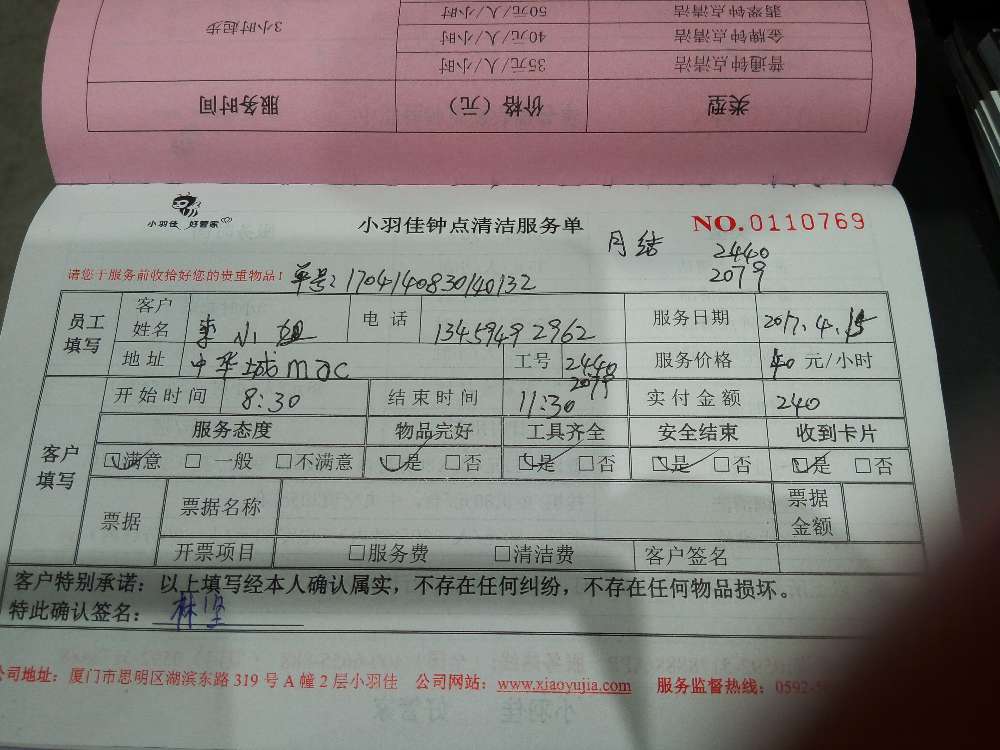 3小时起步
50元/人/小时
翡翠钟点清洁
40元/人/小时
金牌钟点清洁
35元/人/小时
普通钟点清洁
服务时间
价格（元）
类型
小羽佳 好管家
小羽佳钟点清洁服务单
NO.0110769
月结 2440
2079
请您于服务前收拾好您的贵重物品！ 单号:170414083014​0132
员工填写 客户姓名 李小姐 电话 13459492962 服务日期 2017.4.15
地址 中华城mac 工号 2440 2079 服务价格 40 元/小时
客户填写 开始时间 8:30 结束时间 11:30 实付金额 240
服务态度 物品完好 工具齐全 安全结束 收到卡片
☑满意 □一般 □不满意 ☑是 □否 ☑是 □否 ☑是 □否 ☑是 □否
票据 票据名称 票据金额
开票项目 □服务费 □清洁费 客户签名
客户特别承诺：以上填写经本人确认属实，不存在任何纠纷，不存在任何物品损坏。
特此确认签名：林坚
公司地址：厦门市思明区湖滨东路319号A幢2层小羽佳 公司网站：www.xiaoyujia.com 服务监督热线：0592-5